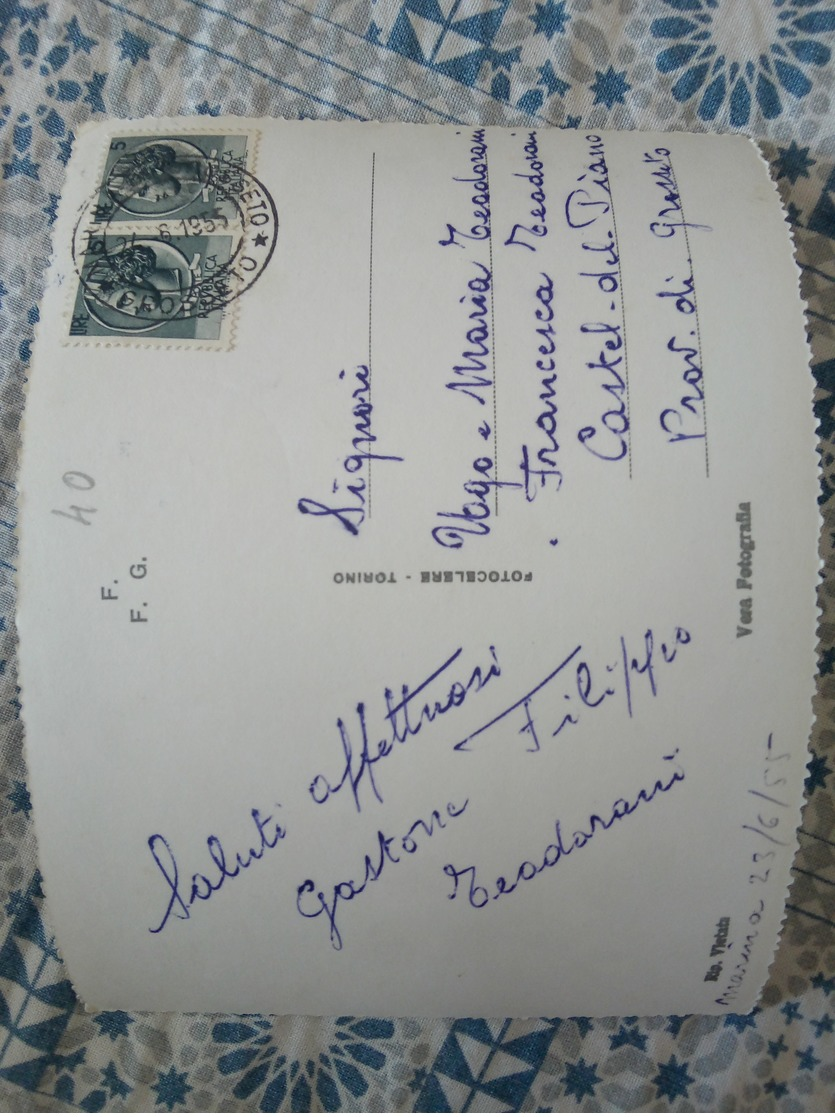 Saluti affettuosi
Gastone Filippo
Teodorani
Rip. Vietata
Marina 23/6/55
F.
F. G.
40
FOTOCELERE - TORINO
Vera Fotografia
LIRE 5
REPUBBLICA
ITALIANA
LIRE
REPUBBLICA
ITALIANA
Signori
Ugo e Maria Teodorani
Francesca Teodorani
Castel-del-Piano
Prov. di Grosseto